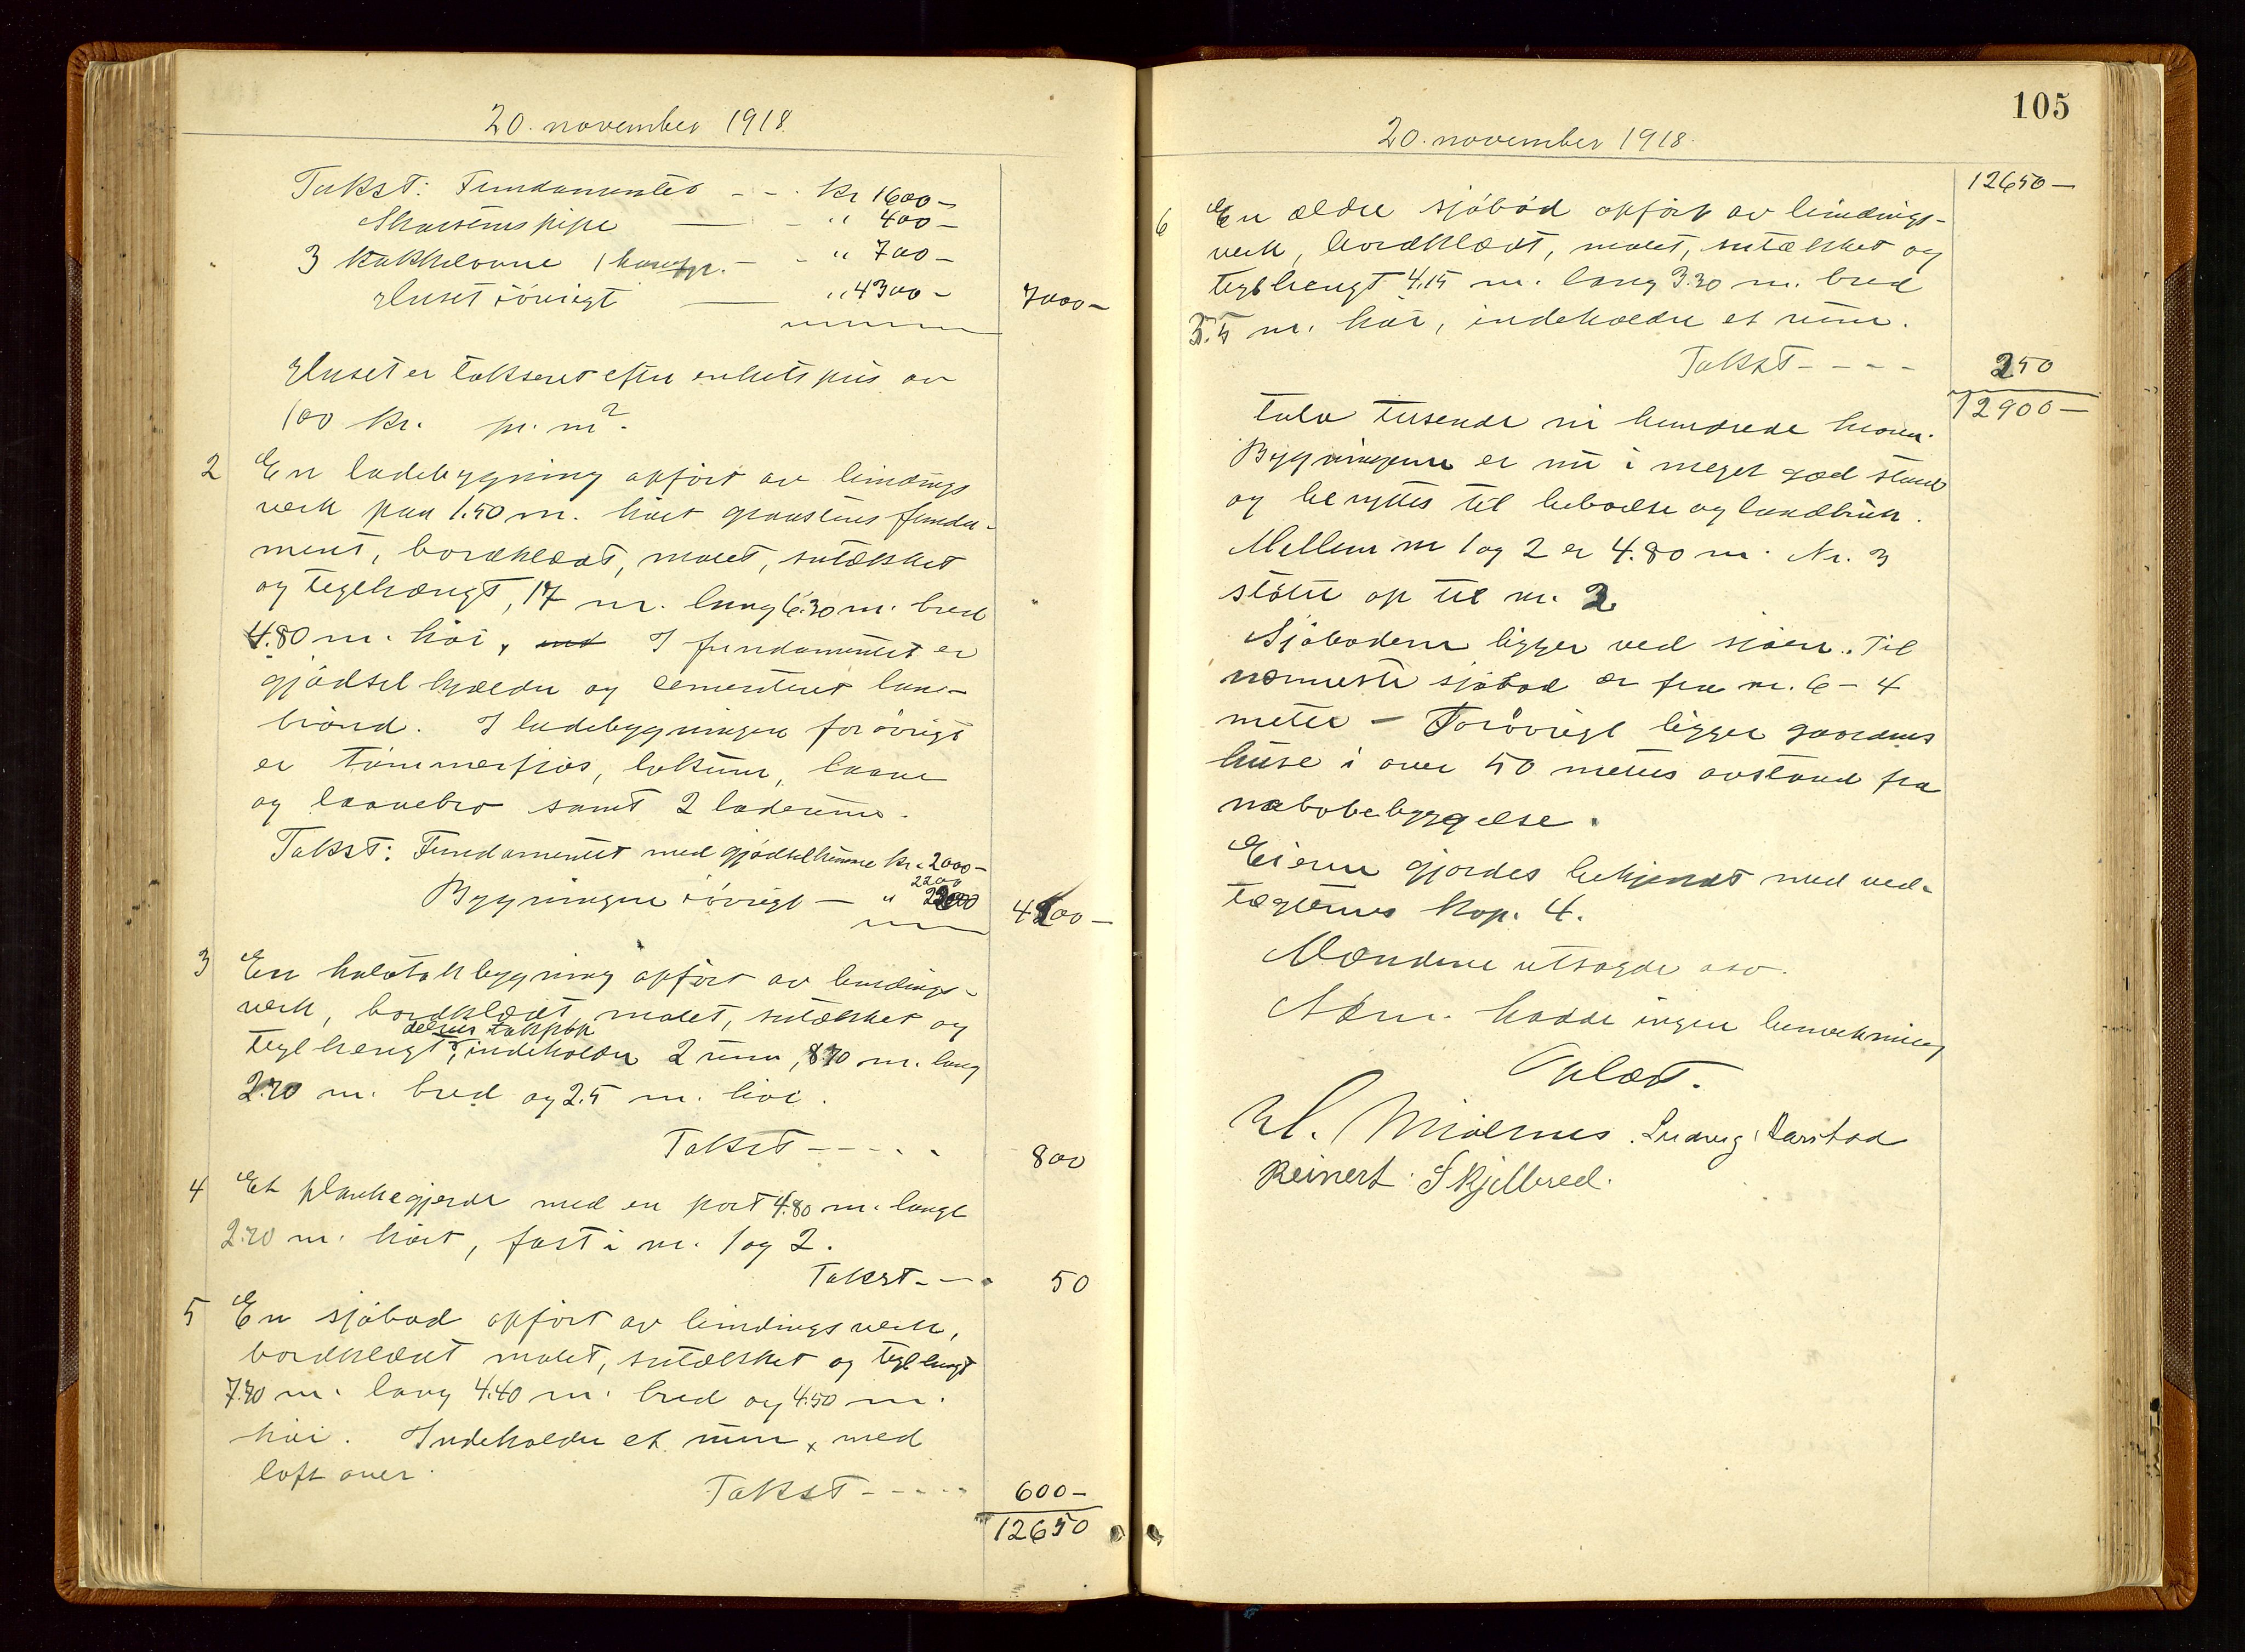 20. november 1918.
Takst: Fundamentet - - . Kr 1600 -
Skorstenspipe — - " 400 -
3 Kakkelovne 1 komfyr. - - " 700 -
Huset iövrigt — " 4300 - 7000 -
Huset er takseret efter enhetspris av
100 kr. pr. m².
2 En ladebygning opfört av bindings
verk paa 1.50 m. höit graastens funda-
ment, bordklædt, malet, sutaksket
og teglhængt, 17 m. lang 6.30 m. bred
4.80 m. höi, ind I fundamentet er
gjödselkjælder og cementeret land-
brönd. I ladebygningen forövrigt
er tömmerfjös, lokum, laave
og laavebro samt 2 laderum.
Takst: Fundamentet med gjödselkummer kr. 2000 -
2200
Bygningen iövrigt — " 4200 -
3 En halvtakbygning opfört av bindings-
verk, bordklædt, malet, sutaksket og
delvis takpap
teglhængt, indeholder 2 rum, 8.70 m. lang
2.70 m. bred og 2.5 m. höi.
Takst - - - - - 800
4 Et plankegjerde med en port 4.80 m. langt
2.70 m. höit, fast i nr. 1 og 2.
Takst - - - 50
5 En sjöbod opfört av bindingsverk,
bordklædt malet, sutaksket og teglhengt
7.70 m. lang 4.40 m. bred og 4.50 m.
höi. Indeholder et rum, med
loft over.
Takst - - - - - 600 -
12650
105
20. november 1918.
12650 —
6 En ældre sjöbod opfört av bindings-
verk, bordklædt, malet, sutaksket og
teglhengt 4.15 m. lang 3.30 m. bred
3.5 m. höi, indeholder et rum.
Takst - - - - 250
12900 —
tolv tusende ni hundrede kroner.
Bygningerne er nu i meget god stand
og benyttes til beboelse og landbruk.
Mellem nr 1 og 2 er 4.80 m. Nr. 3
stöter op til nr. 2
Sjöbodene ligger ved sjöen. Til
nærmeste sjöbod er fra nr. 6 - 4
meter — Forövrigt ligger gaardens
huse i over 50 meters avstand fra
nabobebyggelse.
Eieren gjordes bekjendt med ved-
tægternes kap. 4.
Mændene utsagde osv.
Adm. hadde ingen bemerkning
Oplæst.
Ludvig Harstad
Reinert Skjelbred.